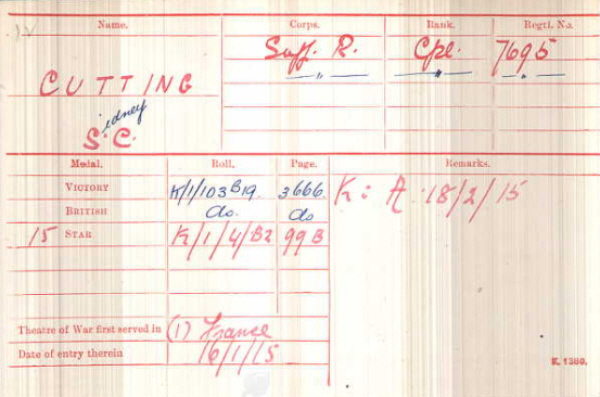 Name. Corps. Rank. Regtl. No.
Suff. R. Cpl. 7695
CUTTING " " "
Sidney
S. C.
Medal. Roll. Page. Remarks.
VICTORY K/1/103B19. 3666. K: A 18/2/15
BRITISH do. do
15 STAR K/1/4/B2 99B
Theatre of War first served in (1) France
Date of entry therein 16/1/15
K. 1380.